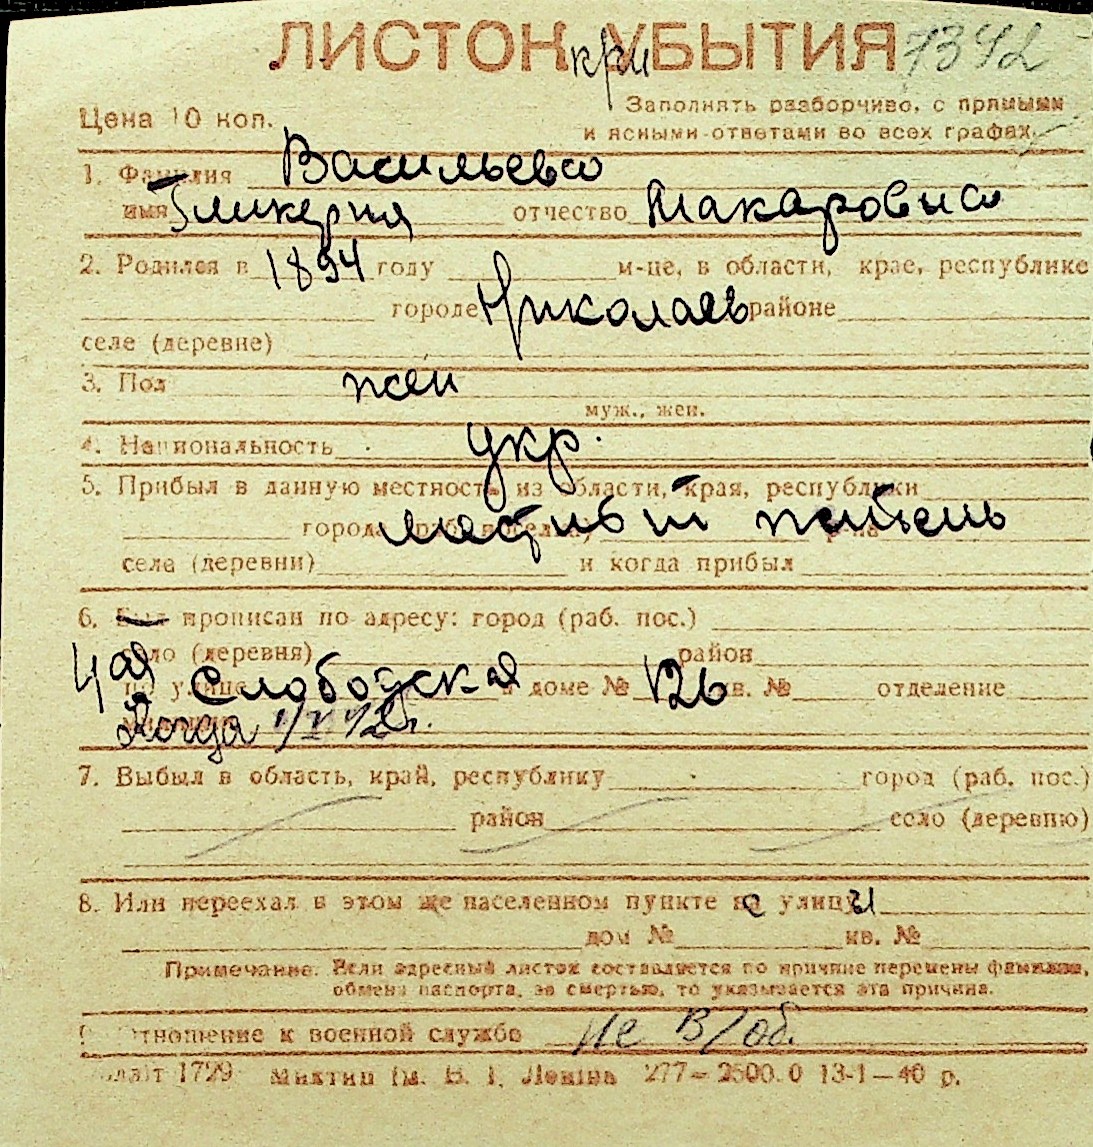 ЛИСТОК УБЫТИЯ 7392
при
Цена 10 коп.
Заполнять разборчиво, с прямыми
и ясными ответами во всех графах
1. Фамилия Васильева
имя Гликерия отчество Макаровна
2. Родился в 1894 году м-це, в области, крае, республике
городе Николаев районе
селе (деревне)
3. Пол жен
муж., жен.
4. Национальность укр.
5. Прибыл в данную местность из области, края, республики
города (раб. поселка) местный житель р-на
села (деревни) и когда прибыл
6. Был прописан по адресу: город (раб. пос.)
село (деревня) район
по улице 4ая Слободская в доме № 126 кв. № отделение
Когда
7. Выбыл в область, край, республику город (раб. пос.)
район село (деревню)
8. Или переехал в этом же населенном пункте с улицы
дом № кв. №
Примечание. Если адресный листок составляется по причине перемены фамилии,
обмена паспорта, за смертью, то указывается эта причина.
Отношение к военной службе не в/об.
1729 Миктип ім. В. І. Леніна 277—2500.0 13-1—40 р.